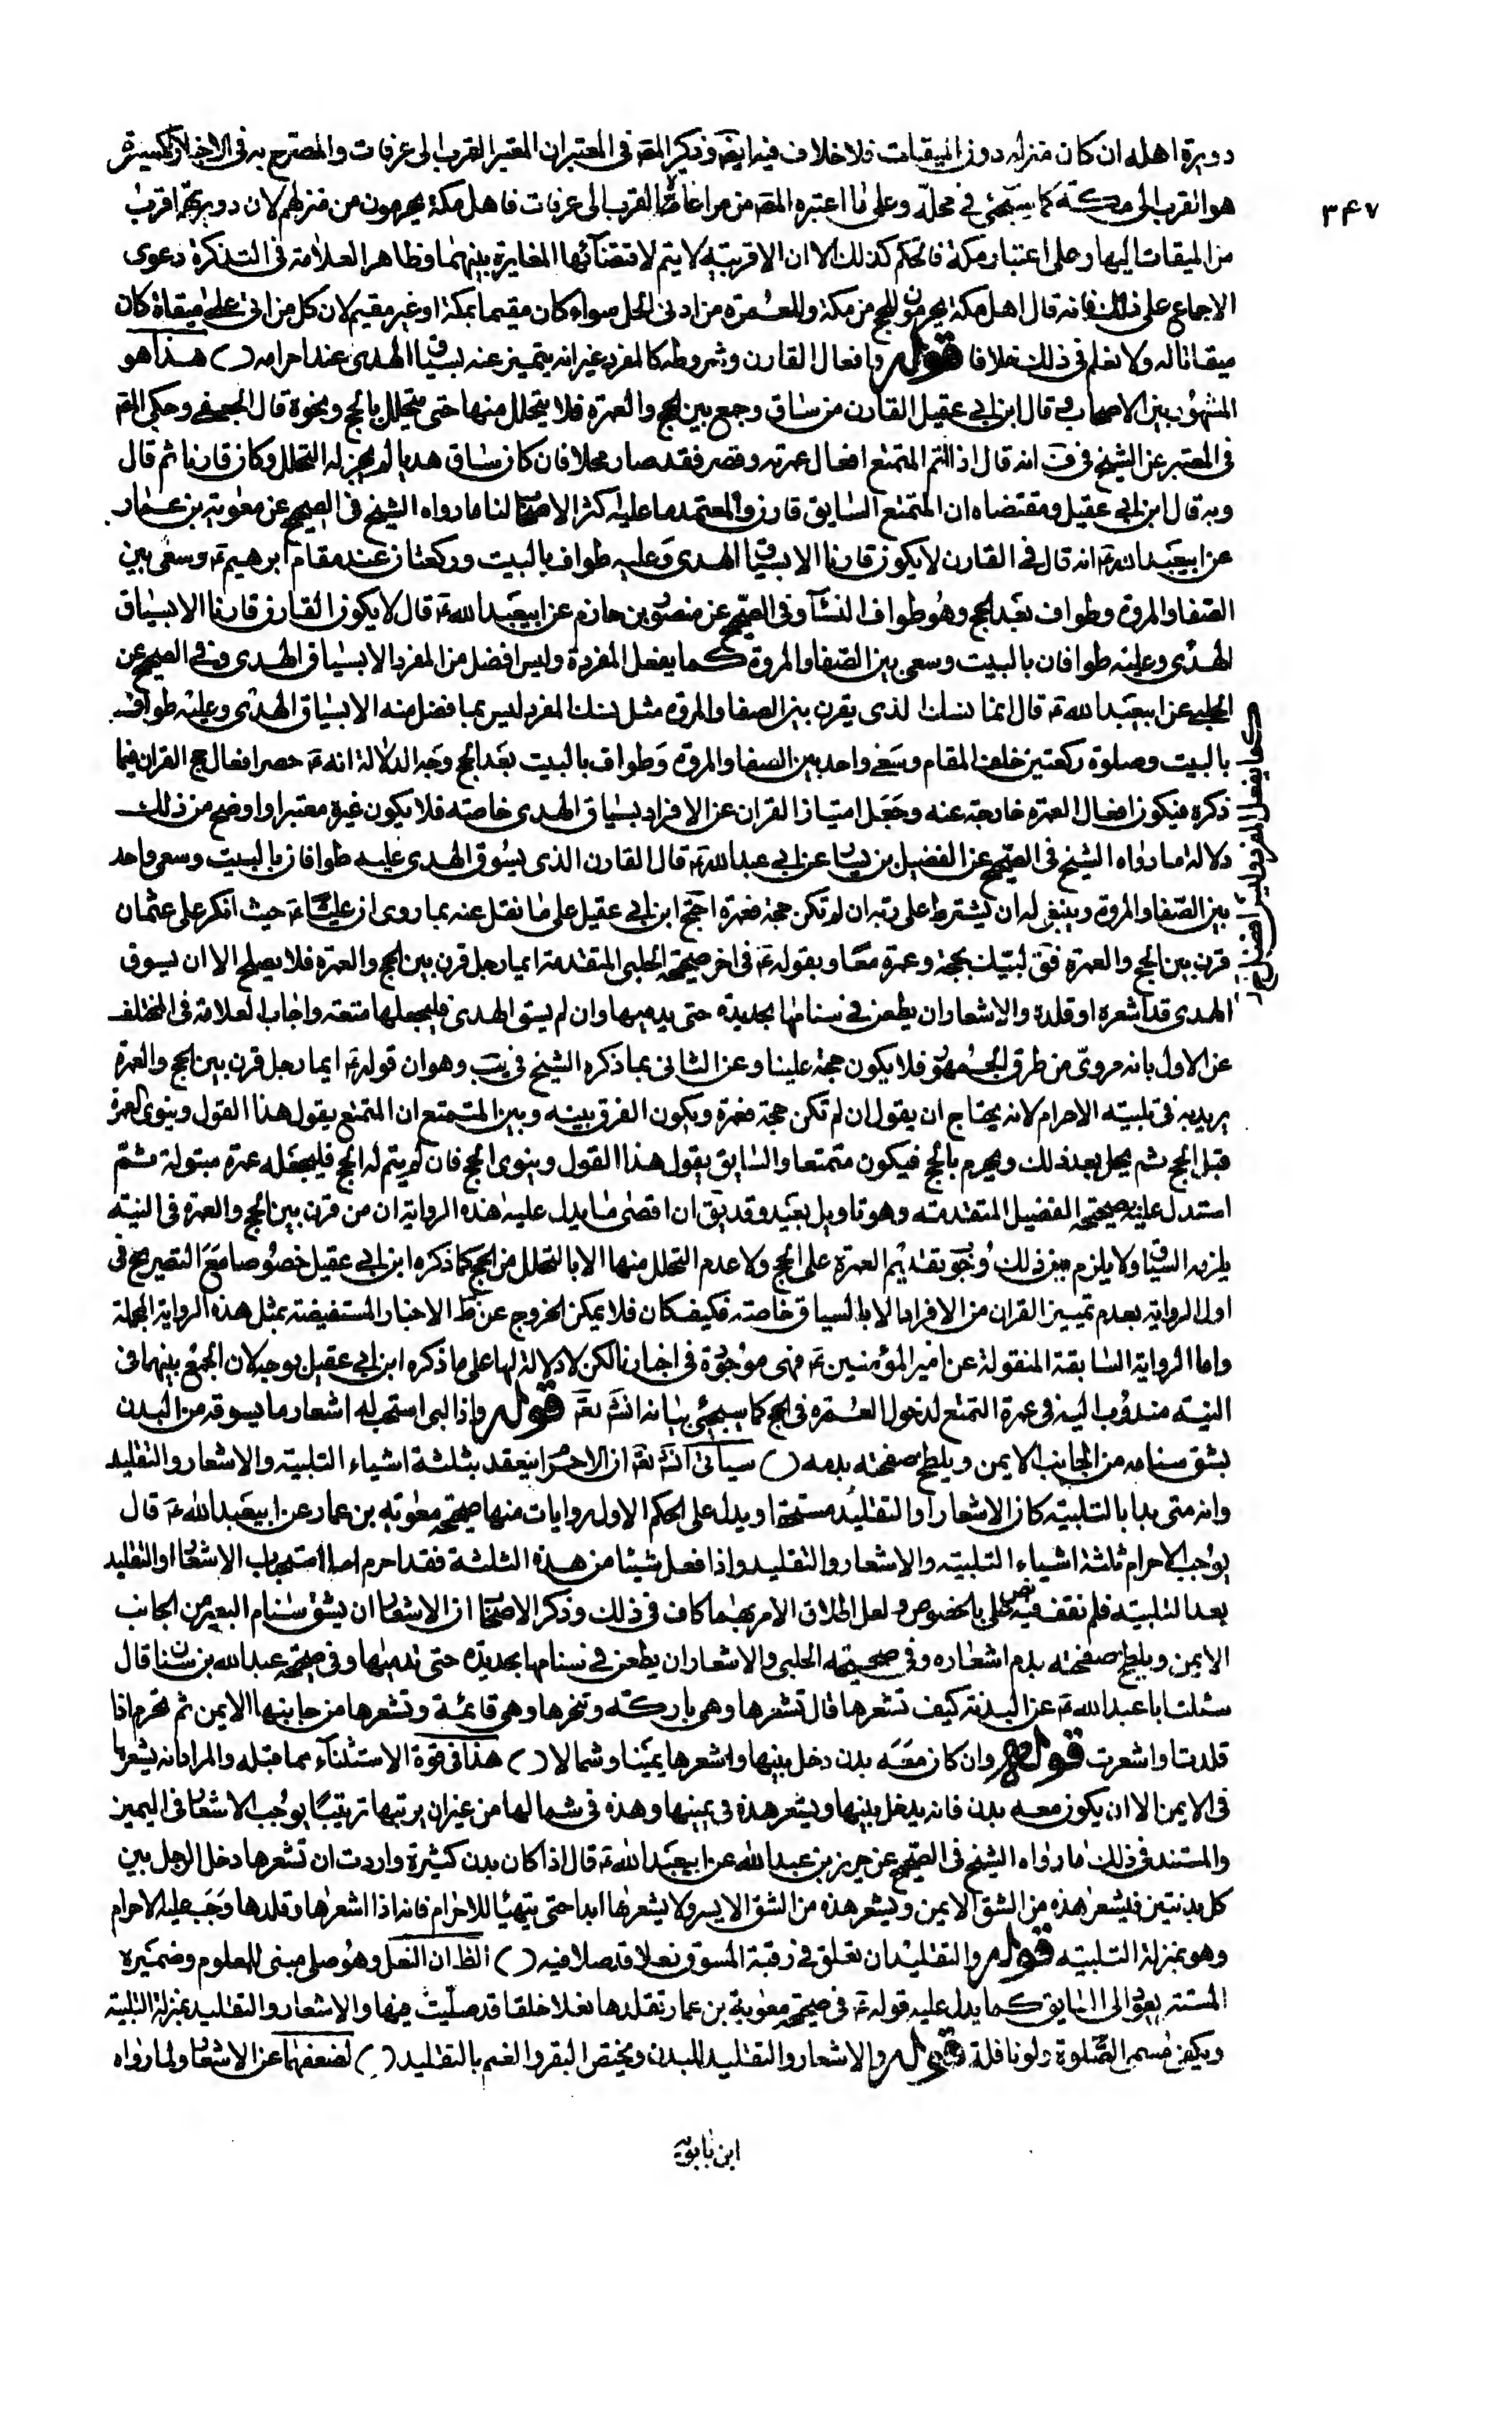 ٣۴٧
دويرة اهله ان كان منزله دون الميقات فلا خلاف فيه ايضا وذكر المص في المعتبر ان المعتبر القرب الى عرفات والمصرح به في الاخبار الكثيرة
هو القرب الى مكة كما سيجئ في محله وعلى ما اعتبره المص من مراعاة القرب الى عرفات فاهل مكة يحرمون من منزلهم لان دويرتهم اقرب
من الميقات اليها وعلى اعتبار مكة فالحكم كذلك الا ان الاقربية لا يتم لاقتضائها المغايرة بينهما وظاهر العلامة في التذكرة دعوى
الاجماع على ذلك فانه قال اهل مكة يحرمون للحج من مكة وللعمرة من ادنى الحل سواء كان مقيما بمكة او غير مقيم لان كل من اتى على ميقات كان
ميقاتا له ولا نعلم في ذلك خلافا قوله وافعال القارن وشروطه كالمفرد غير انه يتميز عنه بسياق الهدى عند احرامه ( ) هذا هو
المشهور بين الاصحاب وقال ابن ابي عقيل القارن من ساق وجمع بين الحج والعمرة فلا يتحلل منها حتى يتحلل بالحج ونحوه قال الجعفي وحكى المص
في المعتبر عن الشيخ في ف انه قال اذا اتم المتمتع افعال عمرته وقصر فقد صار محلا فان كان ساق هديا لم يجز له التحلل وكان قارنا ثم قال
وبه قال ابن ابي عقيل ومقتضاه ان المتمتع السايق قارن والمعتمد ما عليه اكثر الاصحاب لنا ما رواه الشيخ في الصحيح عن معوية بن عمار
عن ابيعبد الله ع انه قال في القارن لا يكون قارنا الا بسياق الهدى وعليه طواف بالبيت وركعتان عند مقام ابرهيم ع وسعى بين
الصفا والمروة وطواف بعد الحج وهو طواف النساء وفي الصحيح عن منصور بن حازم عن ابيعبد الله ع قال لا يكون القارن قارنا الا بسياق
الهدى وعليه طوافان بالبيت وسعى بين الصفا والمروة كما يفعل المفرد وليس افضل من المفرد الا بسياق الهدى وفي الصحيح عن
الحلبي عن ابيعبد الله ع قال انما نسك الذى يقرن بين الصفا والمروة مثل نسك المفرد ليس بما فضل منه الا بسياق الهدى وعليه طواف
بالبيت وصلوة ركعتين خلف المقام وسعى واحد بين الصفا والمروة وطواف بالبيت بعد الحج وجه الدلالة انه ع حصر افعال حج القران فيما
ذكره فيكون افعال العمرة خارجة عنه وجعل امتياز القران عن الافراد بسياق الهدى خاصة فلا يكون غيره معتبرا واوضح من ذلك
دلالة ما رواه الشيخ في الصحيح عن الفضيل بن يسار عن ابي عبد الله ع قال القارن الذى يسوق الهدى عليه طوافان بالبيت وسعى واحد
بين الصفا والمروة وينبغي له ان يشترط على ربه ان لم تكن حجة فعمرة احتج ابن ابي عقيل على ما نقل عنه بما روى ان عليا ع حيث انكر على عثمان
قرن بين الحج والعمرة فق لبيك بحجة وعمرة معا وبقوله ع في اخر صحيحة الحلبي المتقدمة ايما رجل قرن بين الحج والعمرة فلا يصلح الا ان يسوق
الهدى قد اشعره او قلده والاشعار ان يطعن في سنامها بحديدة حتى يدميها وان لم يسق الهدى فليجعلها متعة واجاب العلامة في المختلف
عن الاول بانه مروى من طرق الجمهور فلا يكون حجة علينا وعن الثاني بما ذكره الشيخ في يب وهو ان قوله ع ايما رجل قرن بين الحج والعمرة
يريد به في تلبيته الاحرام لانه يحتاج ان يقول ان لم تكن حجة فعمرة ويكون الفرق بينه وبين المتمتع ان المتمتع يقول هذا القول وينوى العمرة
قبل الحج ثم يحل بعد ذلك ويحرم بالحج فيكون متمتعا والسايق يقول هذا القول وينوى الحج فان لم يتم له الحج فليجعله عمرة مبتولة ثم
استدل عليه بصحيحة الفضيل المتقدمة وهو تاويل بعيد وقد يق ان اقصى ما يدل عليه هذه الرواية ان من قرن بين الحج والعمرة في النية
يلزمه السياق ولا يلزم من ذلك وجوب تقديم العمرة على الحج ولا عدم التحلل منها الا بالتحلل من الحج كما ذكره ابن ابي عقيل خصوصا مع التصريح في
اول الرواية بعدم تمييز القران من الافراد الا بالسياق خاصة فكيف كان فلا يمكن الخروج عن الاخبار المستفيضة بمثل هذه الرواية المجملة
واما الرواية السابقة المنقولة عن امير المؤمنين ع فهى موجودة في اخبارنا لكن لا دلالة لها على ما ذكره ابن ابي عقيل بوجه لان الجمع بينهما في
النية مندوب اليه في عمرة التمتع لدخول العمرة في الحج كما سيجئ بيانه انشاء تع قوله واذا لبى استحب له اشعار ما يسوقه من البدن
بشق سنامه من الجانب الايمن ويلطخ صفحته بدمه ( ) سياتى انشاء تع ان الاحرام ينعقد بثلثة اشياء التلبية والاشعار والتقليد
وانه متى بدا بالتلبية كان الاشعار او التقليد مستحبا ويدل على الحكم الاول روايات منها صحيحة معوية بن عمار عن ابيعبد الله ع قال
يوجب الاحرام ثلثة اشياء التلبية والاشعار والتقليد واذا فعل شيئا من هذه الثلثة فقد احرم اما استحباب الاشعار او التقليد
بعد التلبية فلم نقف فيه على نص بالخصوص ولعل اطلاق الامر بهما كاف في ذلك وذكر الاصحاب ان الاشعار ان يشق سنام البعير من الجانب
الايمن ويلطخ صفحته بدم اشعاره وفي صحيحة الحلبي والاشعار ان يطعن في سنامها بحديدة حتى تدميها وفي صحيحة عبد الله بن سنان قال
سئلت ابا عبد الله ع عن البدنة كيف تشعرها قال تشعرها وهى باركة وتنحرها وهى قائمة وتشعرها من جانبها الايمن ثم تحرم اذا
قلدت واشعرت قوله وان كان معه بدن دخل بينها واشعرها يمينا وشمالا ( ) هذا في قوة الاستثناء مما قبله والمراد انه يشعرها
في الايمن الا ان يكون معه بدن فانه يدخل بينها ويشعر هذه في يمينها وهذه في شمالها من غير ان يرتبها ترتيبا يوجب الاشعار في اليمين
والمستند في ذلك ما رواه الشيخ في الصحيح عن حريز بن عبد الله عن ابيعبد الله ع قال اذا كان بدن كثيرة واردت ان تشعرها دخل الرجل بين
كل بدنتين فيشعر هذه من الشق الايمن ويشعر هذه من الشق الايسر ولا يشعرها ابدا حتى يتهيا للاحرام فانه اذا اشعرها وقلدها وجب عليه الاحرام
وهو بمنزلة التلبية قوله والتقليد ان تعلق في رقبة المسوق نعلا قد صلا فيه ( ) الظ ان الفعل وهو صلى مبنى للمعلوم وضميره
المستتر يعود الى السايق كما يدل عليه قوله ع في صحيحة معوية بن عمار تقلدها نعلا خلقا قد صليت فيها والاشعار والتقليد بمنزلة التلبية
ويكفى مسمى الصلوة ولو نافلة قوله والاشعار والتقليد للبدن ويختص البقر والغنم بالتقليد ( ) لضعفهما عن الاشعار ولما رواه
ابن بابويه
كما يفعل المفرد وليس افضل